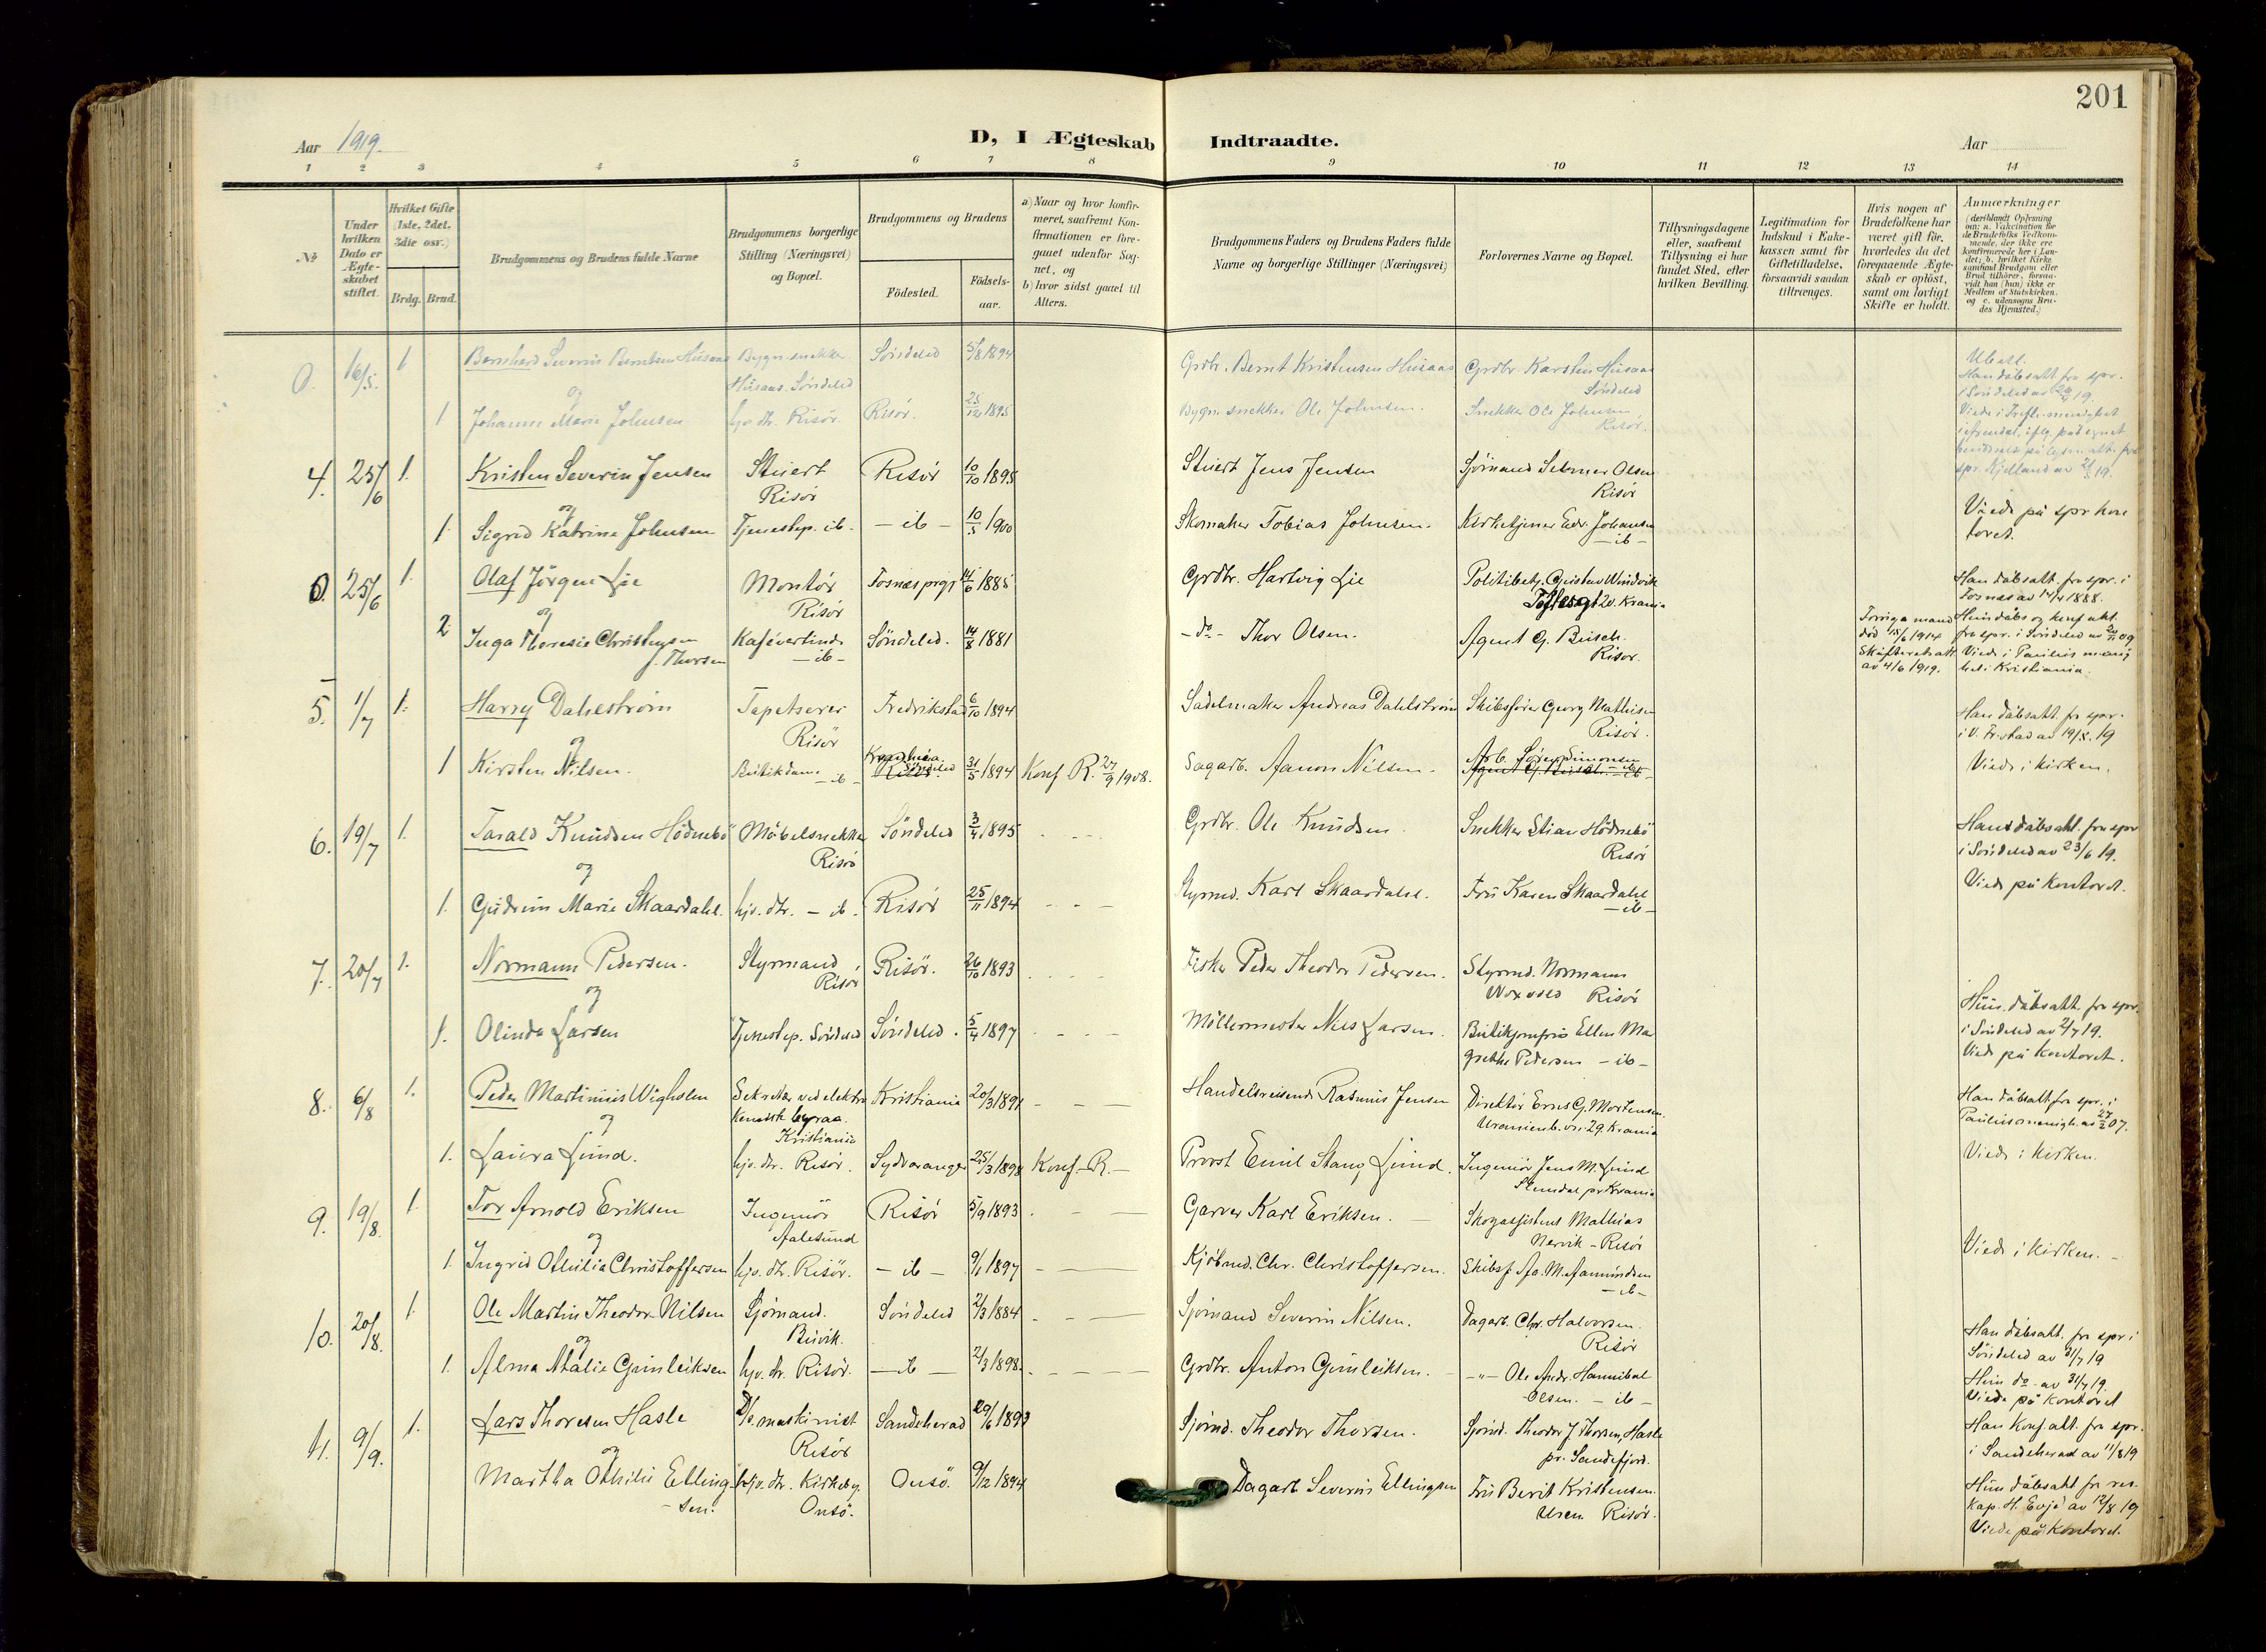 201
Aar 1919.
D, I Ægteskab Indtraadte.
Aar
1 2 3 4 5 6 7 8 9 10 11 12 13 14
№
Under hvilken Dato er Ægteskabet stiftet.
Hvilket Gifte (1ste, 2det, 3die osv.)
Brdg. Brud.
Brudgommens og Brudens fulde Navne
Brudgommens borgerlige Stilling (Næringsvei) og Bopæl.
Brudgommens og Brudens
Fødested.
Fødselsaar.
a) Naar og hvor konfirmeret, saafremt Konfirmationen er foregaaet udenfor Sognet, og
b) hvor sidst gaaet til Alters.
Brudgommens Faders og Brudens Faders fulde Navne og borgerlige Stillinger (Næringsvei)
Forlovernes Navne og Bopæl.
Tillysningsdagene eller, saafremt Tillysning ei har fundet Sted, efter hvilken Bevilling.
Legitimation for Indskud i Enkekassen samt for Giftetilladelse, forsaavidt saadan tiltrænges.
Hvis nogen af Brudefolkene har været gift før, hvorledes da det foregaaende Ægteskab er opløst, samt om lovligt Skifte er holdt.
Anmærkninger (deriblandt Oplysning om: a. Vakcination for de Brudefolks Vedkommende, der ikke ere konfirmerede her i Landet; b. hvilket Kirkesamfund Brudgom eller Brud tilhører, forsaavidt han (hun) ikke er Medlem af Statskirken, og c. udensogns Brudes Hjemsted.)
0. 16/5. 1 Bernhard Severin Berntsen Husaas Bygn. snekker Søndeled 5/8 1894 Grdbr. Bernt Kristensen Husaas Grdbr. Karsten Husaas
og Husaas. Søndeled Søndeled
1 Johanne Marie Johnsen hjv. dtr. Risør. Risør. 25/12 1895 Bygn. snekker Ole Johnsen. Snekker Ole Johnsen
Risør.
Han dåbsatt. fra spr.
i Søndeled
4. 25/6 1. Kristen Severin Jensen Stuert Risør 10/10 1895 Stuert Jens Jensen Sjømand Selmer Olsen
og Risør Risør
1. Sigrid Katrine Johnsen Tjenestep. ib. - ib - 10/5 1900 Skomaker Tobias Johnsen. Kirketjener Edv. Johansen
- ib -
Viede på spr. kon
toret.
0. 25/6 1. Olaf Jørgen Lie Montør Fosnæs prgj 14/6 1885 Grdbr. Hartvig Lie Politibetj. Gustav Windvik
og Risør Toftesgt 20. Krania
2 Inga Theresie Christensen Kafévertinde Søndeled. 14/8 1881 - do - Thor Olsen. Agent G. Busch.
f. Thorsen - ib - Risør.
Forrige mand
død 15/6 1914
Skifteretsatt.
av 4/6 1919.
Han dåbsatt. fra spr. i
Fosnæs av 14/4 1888.
Hun dåbs og konf. att.
fra spr. i Søndeled
Viede i Paulus menig
het i Kristiania.
5. 1/7 1. Harry Dahlstrøm Tapetserer Fredrikstad 6/10 1894 Sadelmaker Andreas Dahlstrøm Skibsfører Georg Mathisen
og Risør Risør.
1 Kirsten Nilsen. Butikdame - ib - Søndeled 31/5 1894 Konf R. 27/9 1908. Sagarb. Aanon Nilsen. Arb. Søren Simonsen
Agent G. Busch. - ib -
Han dåbsatt. fr spr.
i V. Fr.stad av 19/5. 19
Viede i kirken.
6. 19/7 1. Tarald Knudsen Hødnebø Møbelsnekker Søndeled 3/4 1895 Grdbr. Ole Knudsen Snekker Stian Hødnebø
og Risør Risør
1. Gudrun Marie Skaardahl. hjv. dtr. - ib. Risør 25/11 1894 Styrmd. Karl Skaardahl. Fru Karen Skaardahl
- ib -
Hans dåbsatt. fra spr
i Søndeled av 23/6 19.
Viede på kontoret.
7. 20/7 1. Normann Pedersen. Styrmand Risør. 26/10 1893 Fisker Peder Theodor Pedersen. Styrmd. Normann
og Risør Woxvold Risør
1. Olinda Larsen Tjenestep. Søndeled Søndeled. 5/4 1897 Møllermester Niels Larsen. Butikjomfru Ellen Ma
grethe Pedersen - ib -
Hun. dåbsatt. fra spr.
i Søndeled av 2/7 19.
Viede på kontoret.
8. 6/8 1. Peder Martinius Wigholm Sekretær ved elektro Kristiania 20/3 1891 Handelsreisende Rasmus Jensen Direktør Ernst G. Mortensen.
og kemisk byraa. Uranienb. v. 29. Krania
Kristiania
1. Laura Lund. hjv. dtr. Risør. Sydvaranger 25/3 1898 Konf. R. - Provst Emil Stang Lund. Ingeniør Jens M. Lund
Slemdal pr Krania
Han dåbsatt fra spr. i
Paulus menigh. av 27/2 07.
Viede i kirken.
9. 19/8. 1. Tor Arnold Eriksen Ingeniør Risør 5/9 1893 Garver Karl Eriksen. Skogassistent Mathias
og Aalesund Nervik - Risør
1. Ingrid Othilia Christoffersen hjv. dtr. Risør. - ib - 9/1 1897 Kjøbmd. Chr. Christoffersen. Skibsf. Aa. M. Aamundsen
- ib -
Viede i kirken.
10. 20/8. 1. Ole Martin Theodor Nilsen Sjømand. Søndeled 2/3 1884 Sjømand Severin Nilsen. Dagarb. Chr. Halvorsen.
og Buvik. Risør
1. Alma Atalie Gunleiksen hjv. dtr. Risør. - ib - 2/3 1898. Grdbr. Anton Gunleiksen. - " - Ole Andr. Hannibal
Olsen. - ib -
Han dåbsatt. fra spr i
Søndeled av 31/7 19
Hun do av 31/7 19.
Viede på kontoret
11. 9/9. 1. Lars Thoresen Hasle D/s. maskinist Sandeherad 29/6 1893 Sjømd. Theodor Thorsen. Sjømd. Theodor J. Thorsen, Hasle
og Risør pr. Sandefjord.
Martha Othilie Elling- hjv. dtr. Kirkeby. Onsø. 9/12 1894 Dagarb Severin Ellingsen Fru Berit Kristensen
sen. Onsø. Uren Risør.
Han Konf. att. fra spr.
i Sandeherad av 11/8 19
Hun dåbsatt fra res.
kap. H. Evje av 12/8 19
Viede på kontoret.